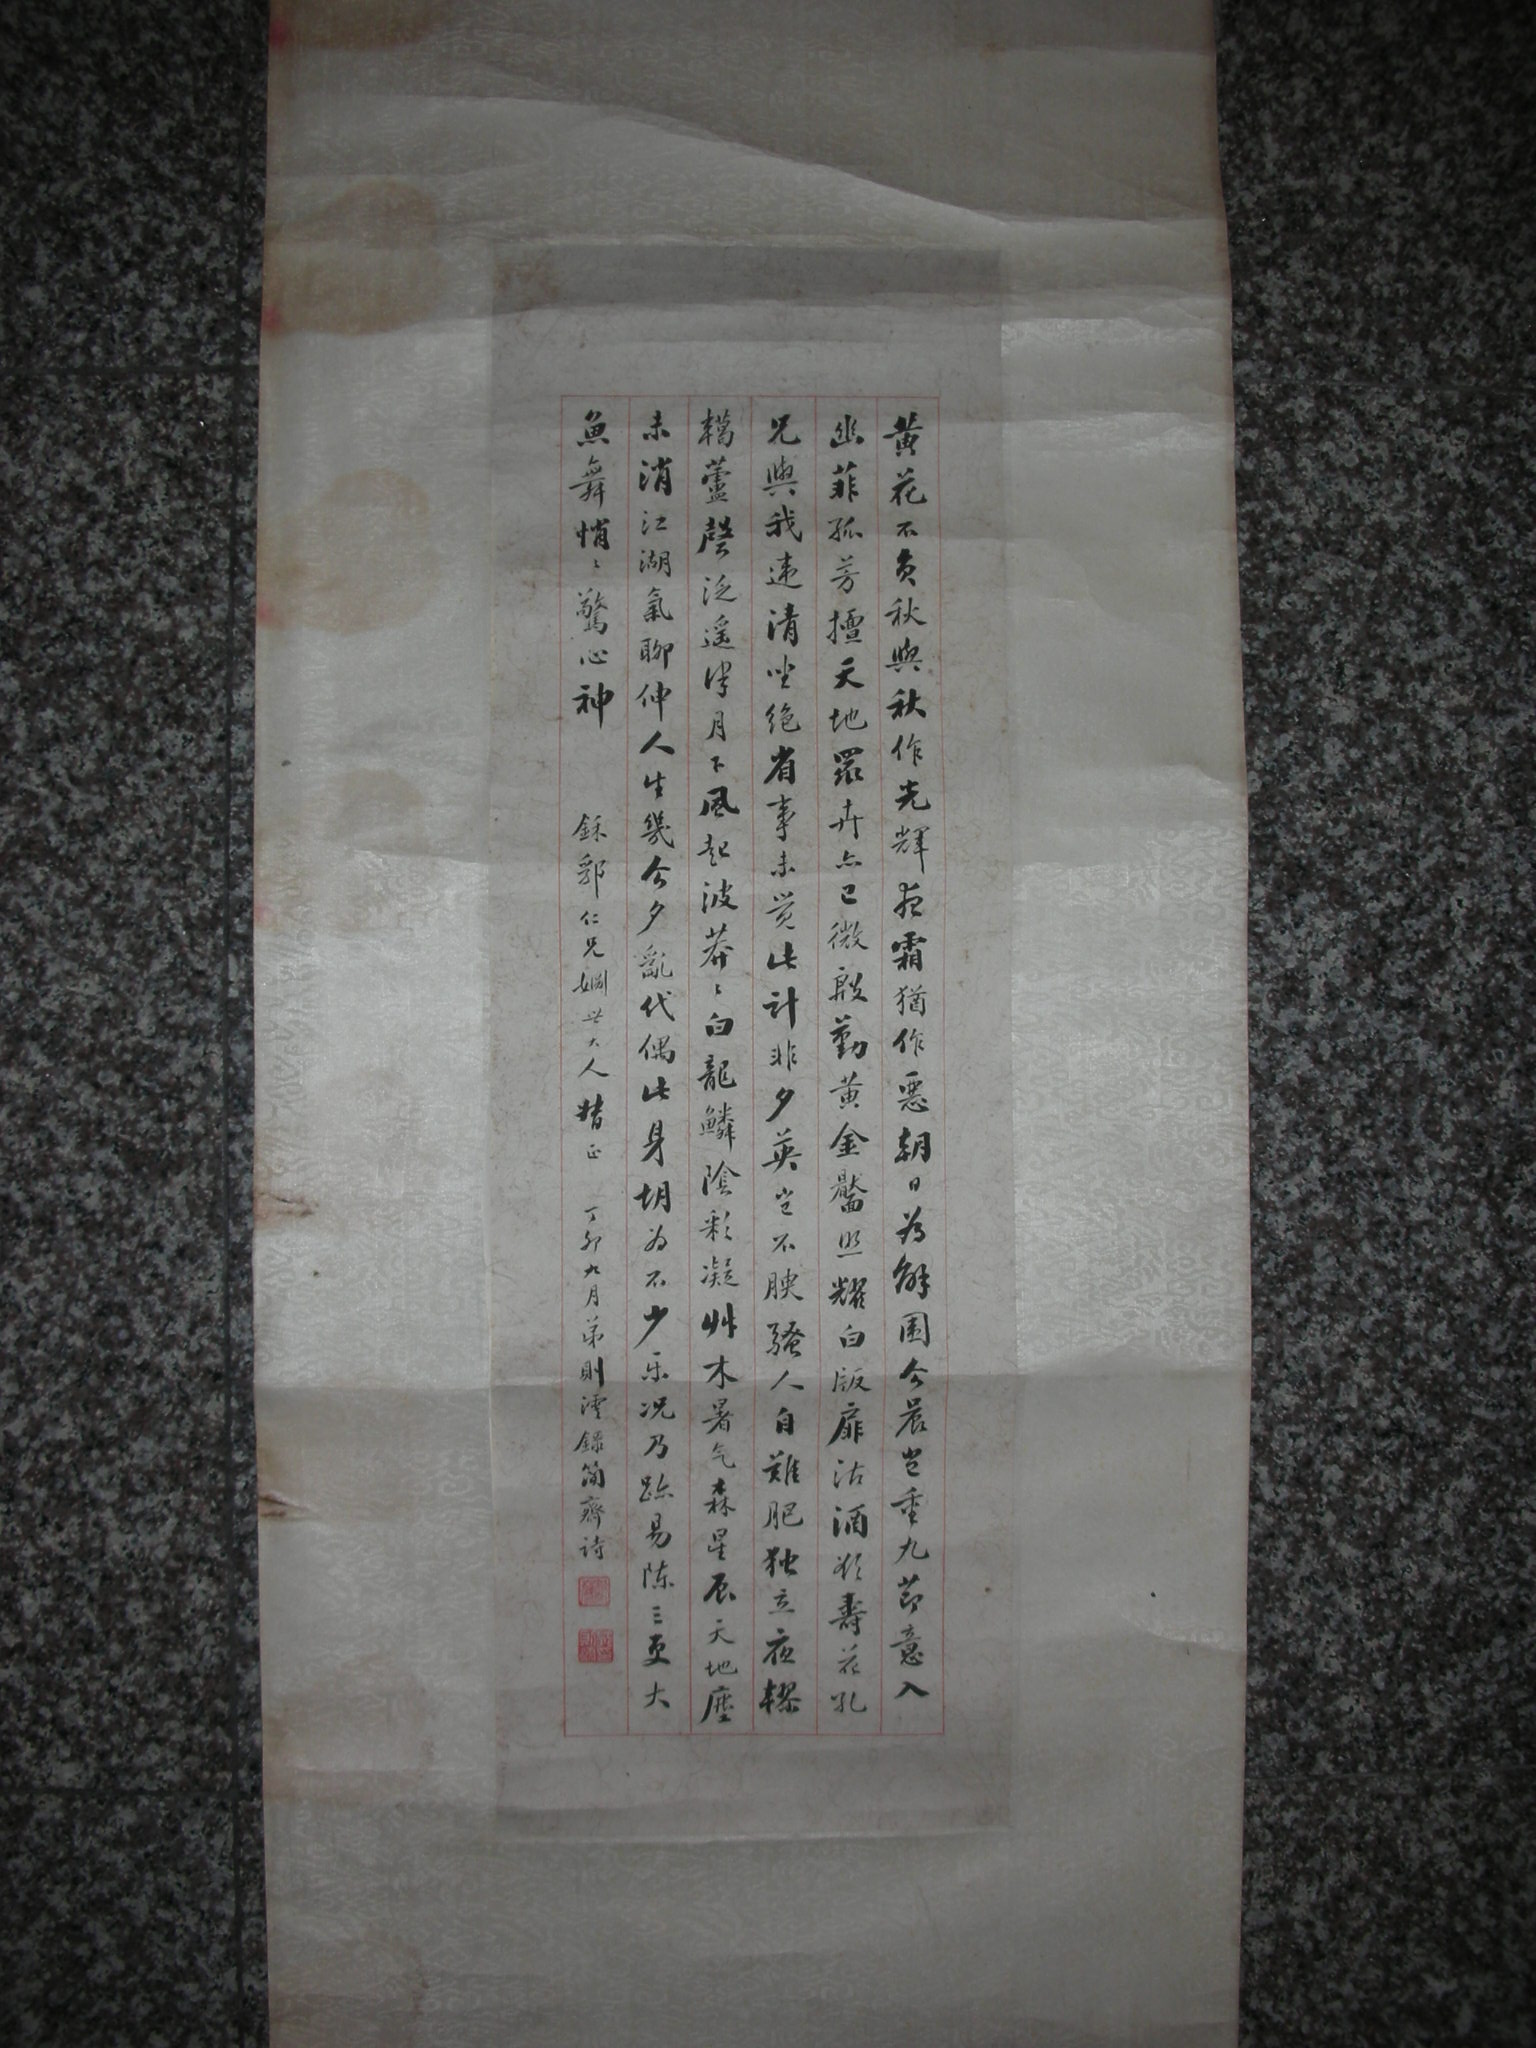 黄花不負秋與秋作光輝夜霜猶作惡朝日為解圍今晨豈重九節意入
幽菲孤芳擅天地眾卉亦已微殷勤黄金靨照耀白版扉沽酒欲壽花孔
兄與我違清坐絶省事未覺此計非夕英豈不腴騷人自難肥獨立夜轇
轕蘆聲泛遥津月下風起波莽莽白龍鱗陰彩凝艸木暑气森星辰天地塵
未消江湖氣聊伸人生幾今夕亂代偶此身胡為不少乐况乃跡易陈三更大
魚舞悄悄驚心神
鉌郛仁兄姻世大人督正 丁卯九月弟則澐録簡齋诗